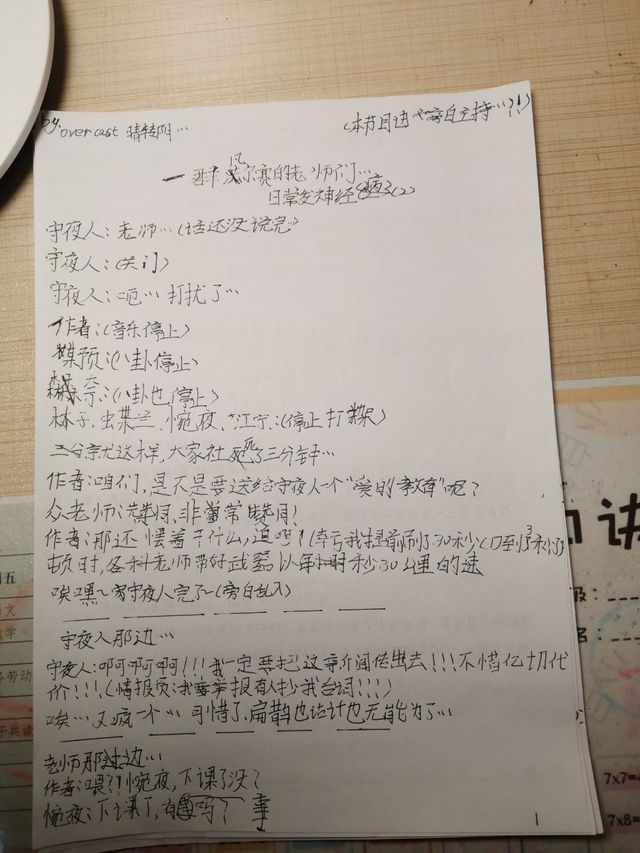 overcast 晴转阴…
(本节目由"旁白主持…?!)
一群凡尔赛的老师们…
日常发神经病(2)
守夜人:老师…(话还没说完)
守夜人:(关门)
守夜人:呃… 打扰了…
作者:(音乐停止)
预:(八卦停止)
奈:(八卦也停止)
林子、虫菜兰、惋夜、江宁:(停止打架)
三分就这样,大家社死了三分钟…
作者:咱们,是不是要送给守夜人一个"爱的教育"呢?
众老师:赞同,非常赞同!
作者:那还愣着干什么,追吗!(幸亏我提前师了30秒(口到3秒了)
顿时,各科老师带好武器以年时秒30公里的速
唉嘿~守夜人完了~(旁白乱入)
守夜人那边…
守夜人:啊啊啊啊!!!我一定要把这新闻传出去!!!不惜亿切代
价!!!(情报员:我要举报有人抄我台词!!!)
唉… 又疯一个… 可惜了,扁鹊也估计也无能为了…
老师那边…
作者:喂?!惋夜,下课了没?
惋夜:下课了,有吗? 事
1
讲
7x7=4
7x8=